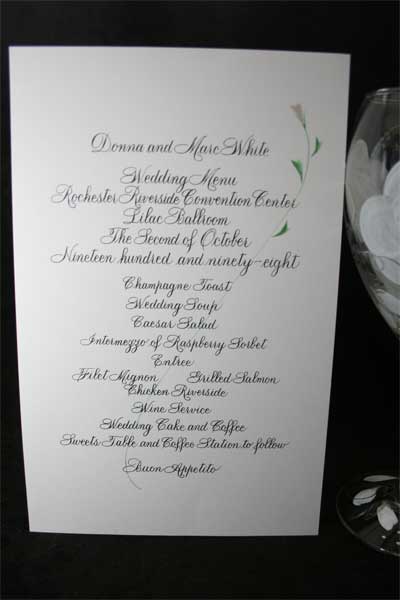 Donna and Marc White
Wedding Menu
Rochester Riverside Convention Center
Lilac Ballroom
The Second of October
Nineteen hundred and ninety-eight
Champagne Toast
Wedding Soup
Caesar Salad
Intermezzo of Raspberry Sorbet
Entree
Filet Mignon Grilled Salmon
Chicken Riverside
Wine Service
Wedding Cake and Coffee
Sweets Table and Coffee Station to follow
Buon Appetito